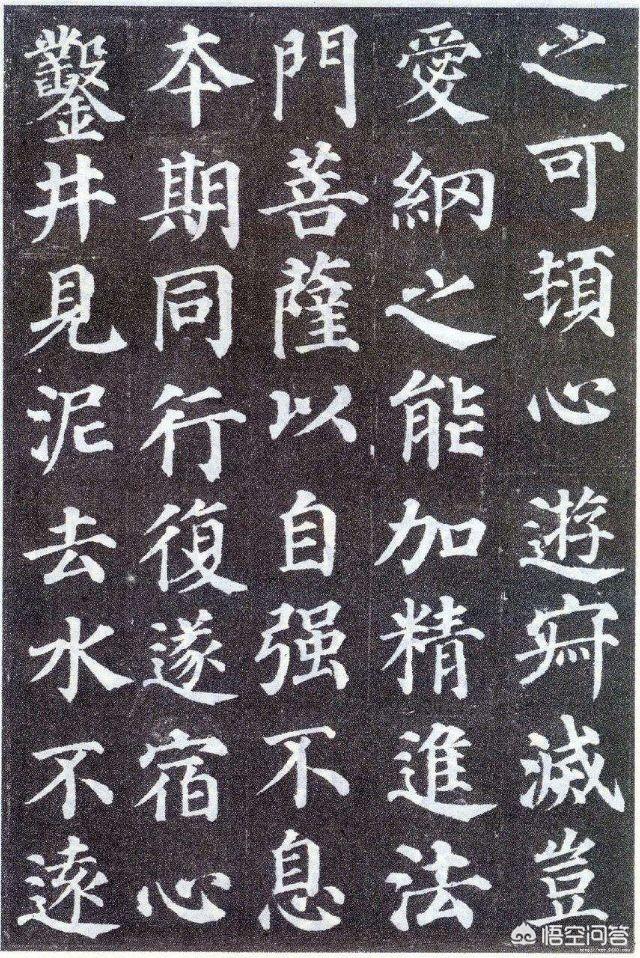 之可頃心遊寂滅豈
愛網之能加精進法
門菩薩以自强不息
本期同行復遂宿心
鑿井見泥去水不遠
悟空问答